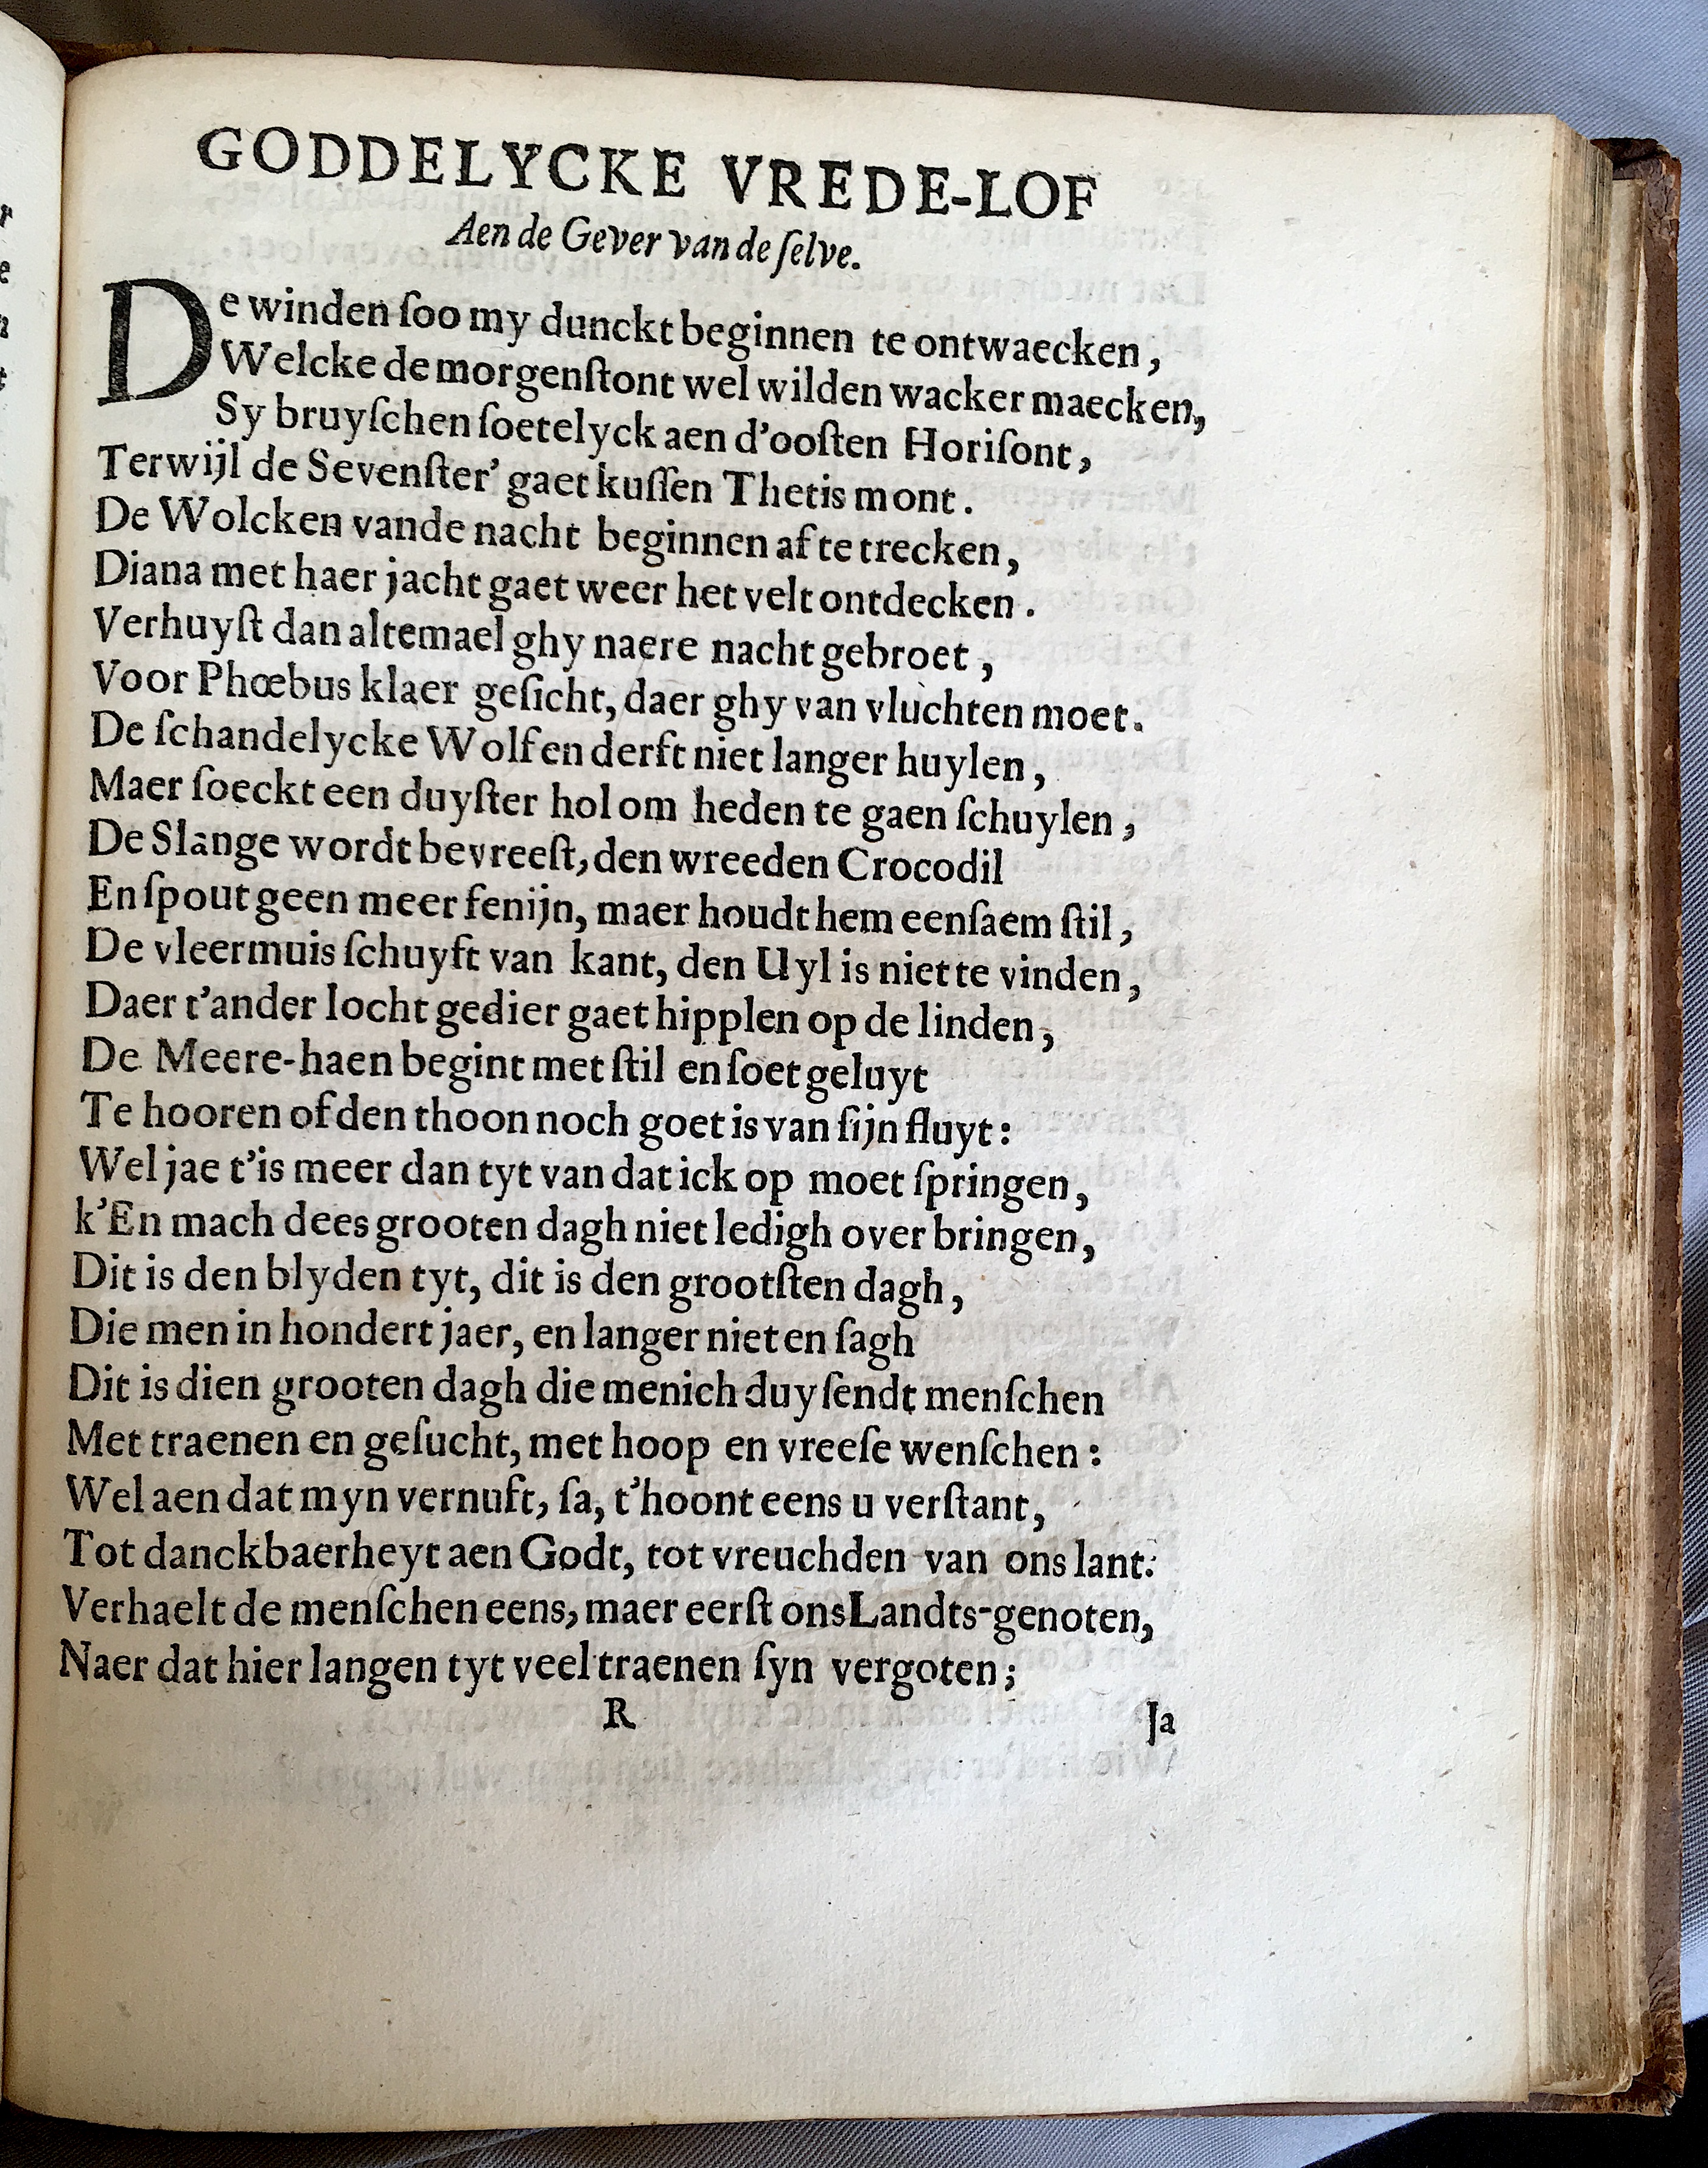 GODDELYCKE VREDE-LOF
Aen de Gever van de ſelve.
De winden ſoo my dunckt beginnen te ontwaecken,
Welcke de morgenſtont wel wilden wacker maecken,
Sy bruyſchen ſoetelyck aen d'ooſten Horiſont,
Terwijl de Sevenſter' gaet kuſſen Thetis mont.
De Wolcken vande nacht beginnen af te trecken,
Diana met haer jacht gaet weer het velt ontdecken.
Verhuyſt dan altemael ghy naere nacht gebroet,
Voor Phœbus klaer geſicht, daer ghy van vluchten moet.
De ſchandelycke Wolf en derft niet langer huylen,
Maer ſoeckt een duyſter hol om heden te gaen ſchuylen,
De Slange wordt bevreeſt, den wreeden Crocodil
En ſpout geen meer fenijn, maer houdt hem eenſaem ſtil,
De vleermuis ſchuyft van kant, den Uyl is niet te vinden,
Daer t'ander locht gedier gaet hipplen op de linden,
De Meere-haen begint met ſtil en ſoet geluyt
Te hooren of den thoon noch goet is van ſijn fluyt:
Wel jae t'is meer dan tyt van dat ick op moet ſpringen,
k'En mach dees grooten dagh niet ledigh over bringen,
Dit is den blyden tyt, dit is den grootſten dagh,
Die men in hondert jaer, en langer niet en ſagh
Dit is dien grooten dagh die menich duyſendt menſchen
Met traenen en geſucht, met hoop en vreeſe wenſchen:
Wel aen dat myn vernuft, ſa, t'hoont eens u verſtant,
Tot danckbaerheyt aen Godt, tot vreuchden van ons lant:
Verhaelt de menſchen eens, maer eerſt ons Landts-genoten,
Naer dat hier langen tyt veel traenen ſyn vergoten;
R Ja